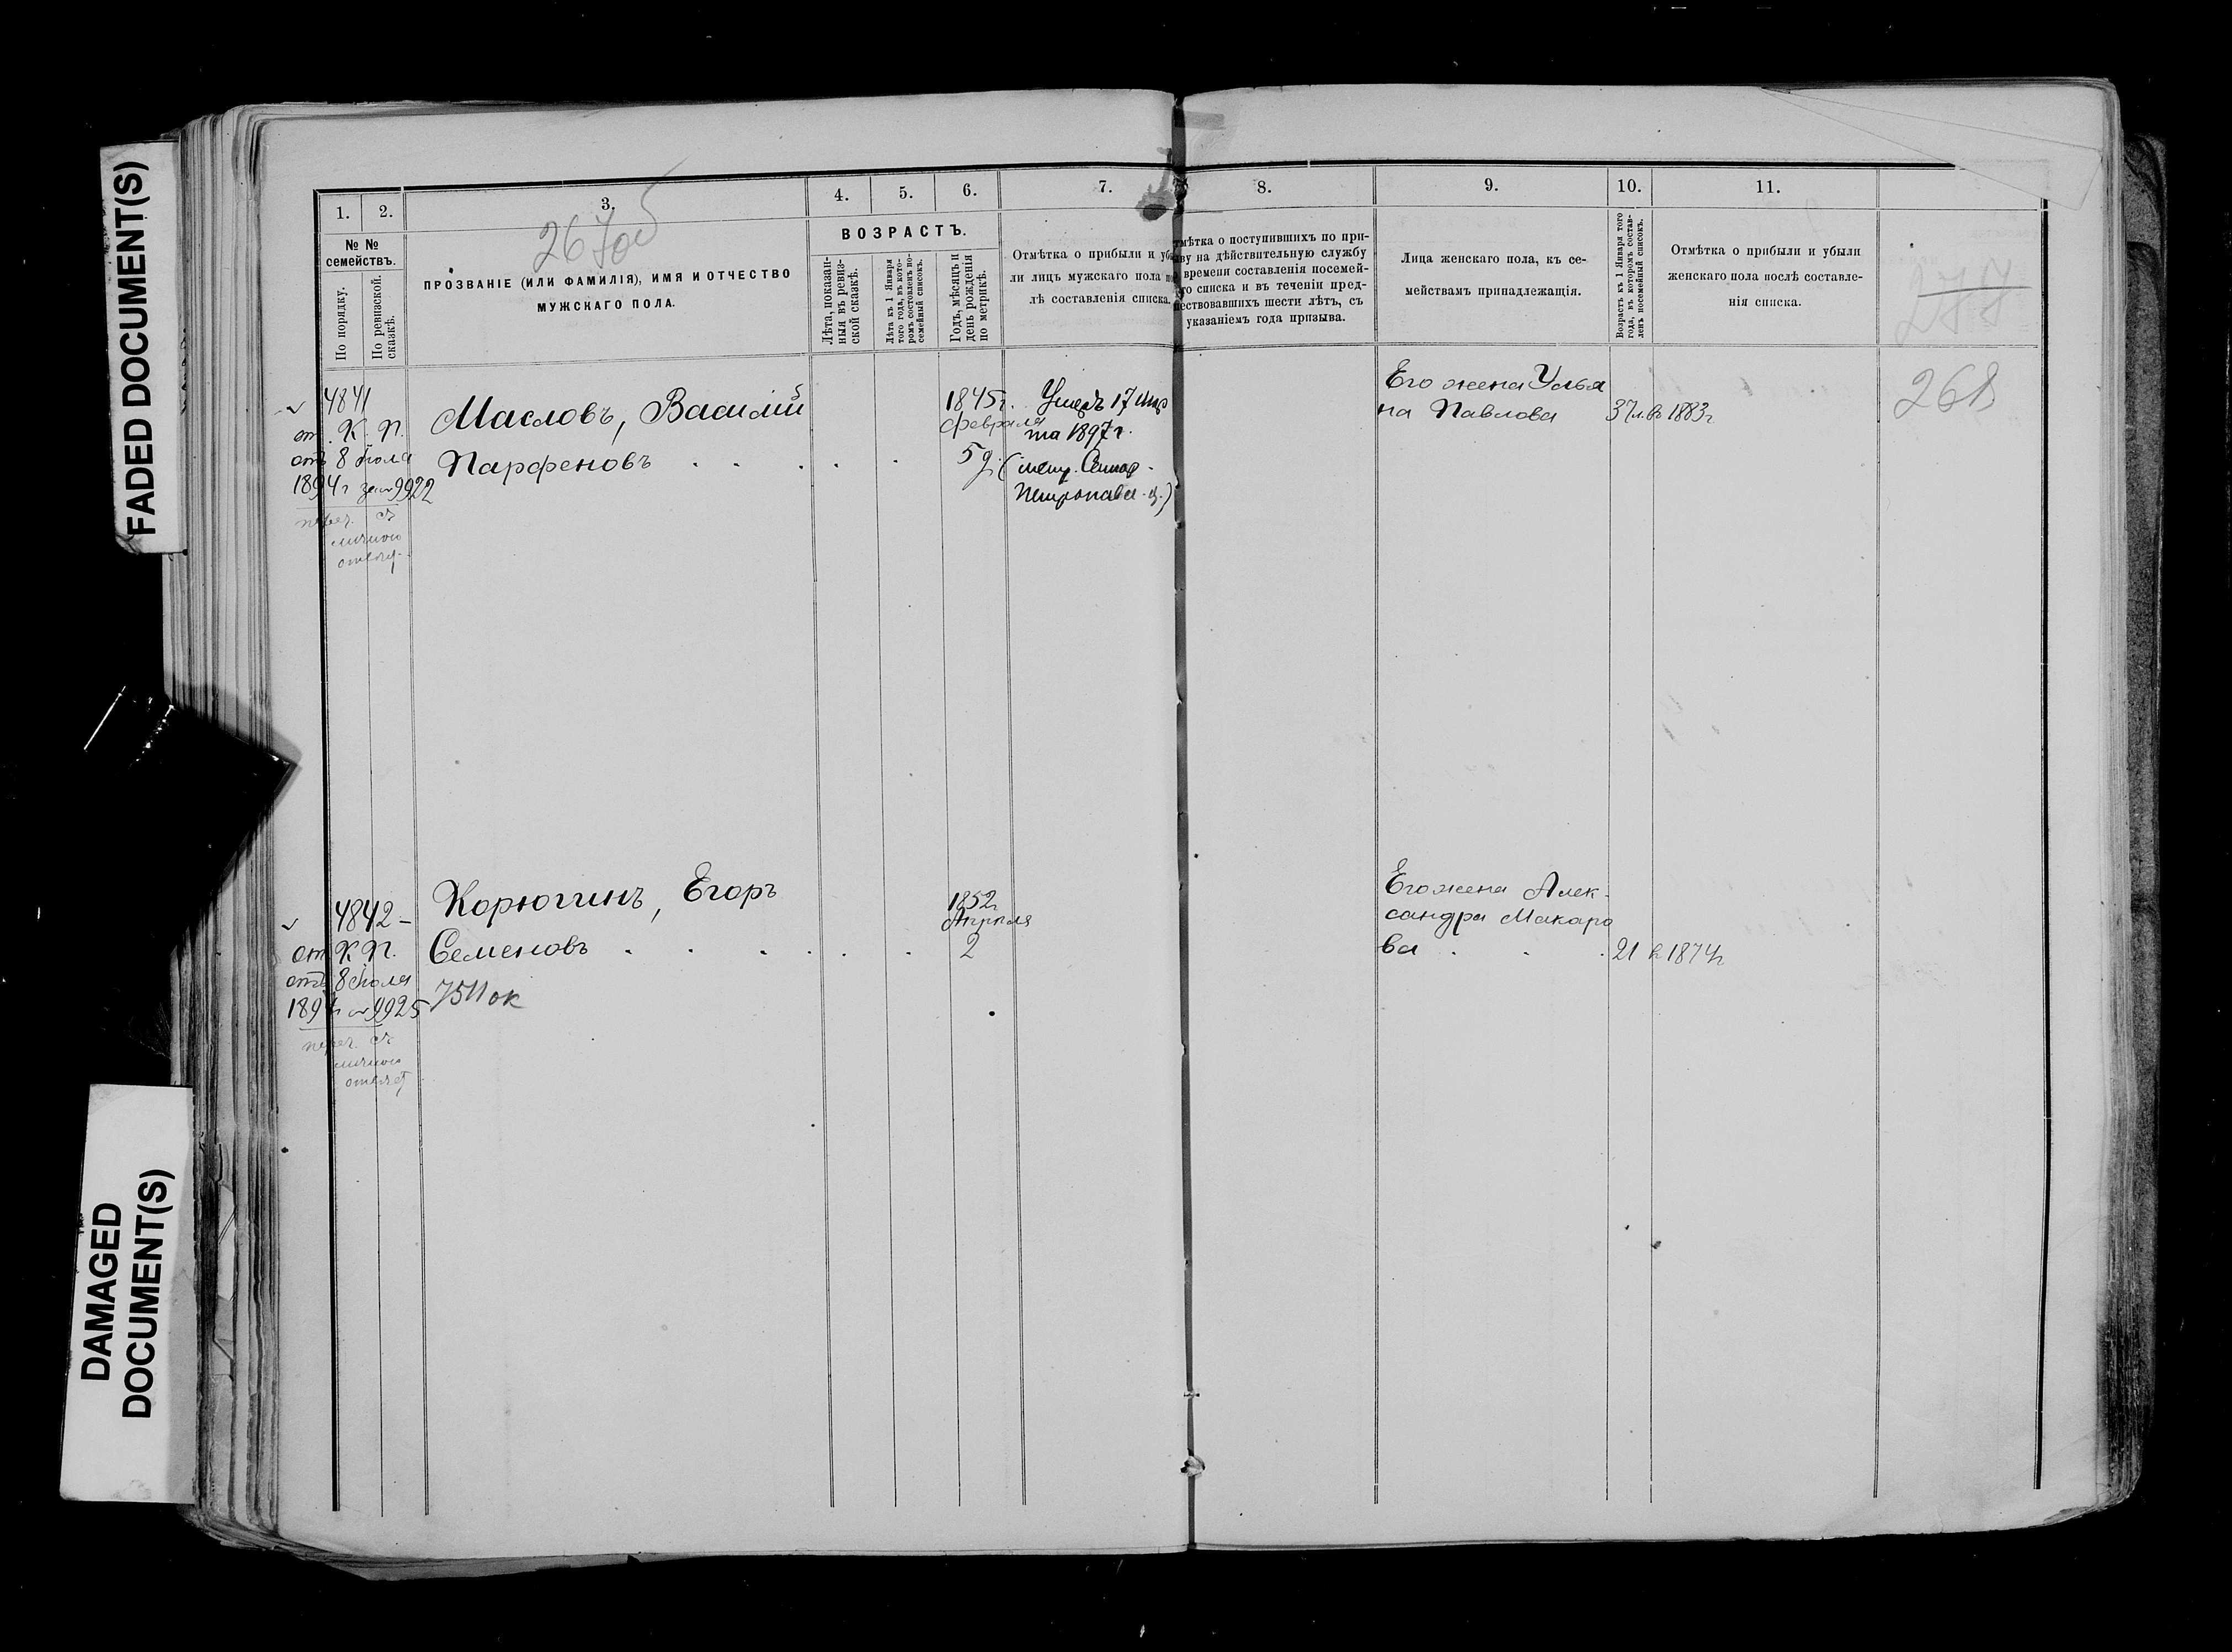 FADED DOCUMENT(S)
DAMAGED
DOCUMENT(S)
267об
1. 2. 3. 4. 5. 6. 7. 8. 9. 10. 11.
№ №
семействъ.
По порядку.
По ревизской
сказкѣ.
ПРОЗВАНІЕ (ИЛИ ФАМИЛІЯ), ИМЯ И ОТЧЕСТВО
МУЖСКАГО ПОЛА.
ВОЗРАСТЪ.
Лѣта, показан-
ныя въ ревиз-
ской сказкѣ.
Лѣта къ 1 Января
того года, въ кото-
ромъ составленъ по-
семейный списокъ.
Годъ, мѣсяцъ и
день рожденія
по метрикѣ.
Отмѣтка о прибыли и убы
ли лицъ мужскаго пола
лѣ составленія списка.
тмѣтка о поступившихъ по при-
ву на дѣйствительную службу
времени составленія посемей-
го списка и въ теченіи пред-
шествовавшихъ шести лѣтъ, съ
указаніемъ года призыва.
Лица женскаго пола, къ се-
мействамъ принадлежащія.
Возрастъ къ 1 Января того
года, въ которомъ состав-
ленъ посемейный списокъ.
Отмѣтка о прибыли и убыли
женскаго пола послѣ составле-
нія списка.
277
268
4841
от. К. П.
отъ 8 Іюля
1894 г за № 9922
переч. съ
личного
Масловъ, Василій
Парфеновъ
1845 г.
февраля
5
Умеръ 17 мар
та 1897 г.
Его жена Улья
на Павлова 37 л. въ 1883 г
4842 –
от К. П.
отъ 8 Іюля
1894 г № 9925
переч. съ
личного
Корюгинъ, Егоръ
Семеновъ
7511 ок
1852 г
Апреля
2
Его жена Алек-
сандра Макаро
ва . . . 21 в 1874 г